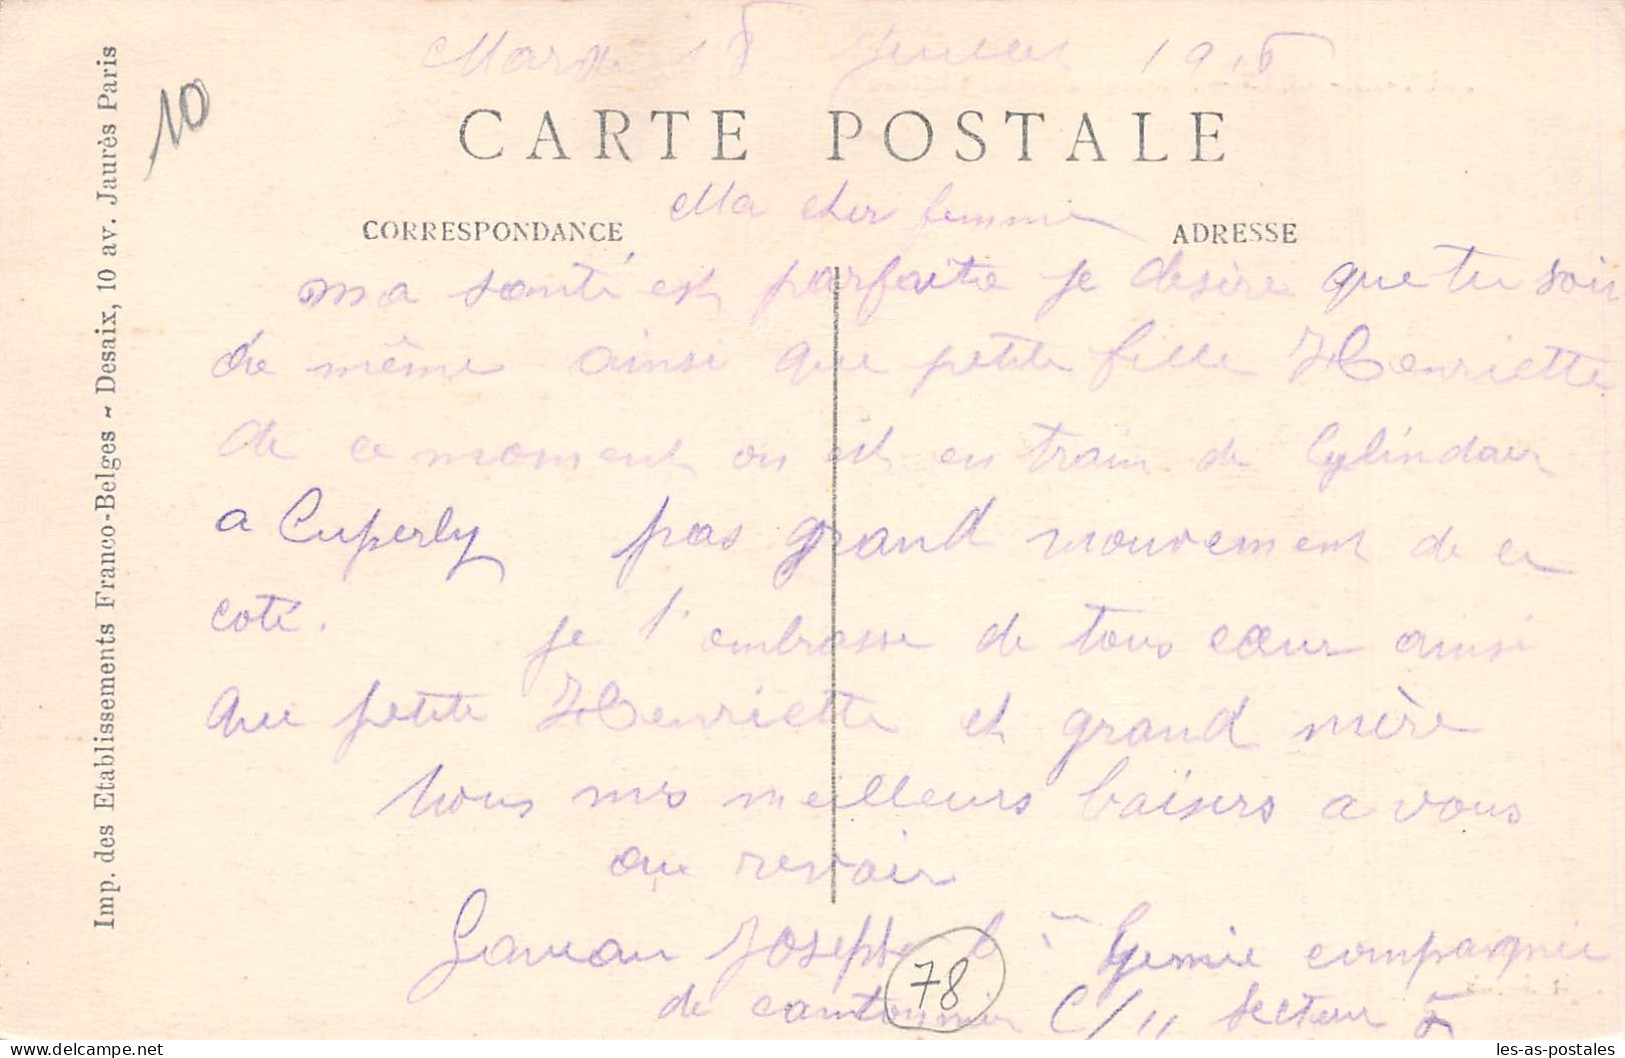 10
CARTE POSTALE
Ma cher femme
CORRESPONDANCE
ADRESSE
ma santé est parfaite je desire que tu soir
de même ainsi que petite fille Henriette
de ce moment on est en train de Cylindrer
a Cuperly pas grand mouvement de ce
coté. je l'embrasse de tous cœur ainsi
que petite Henriette et grand mère
tous mes meilleurs baisers a vous
au revoir
Joseph 6 Genie compagnie
de cantonnier C/11 secteur 5
78
Imp. des Etablissements Franco-Belges ~ Desaix, 10 av. Jaurès Paris
les-as-postales